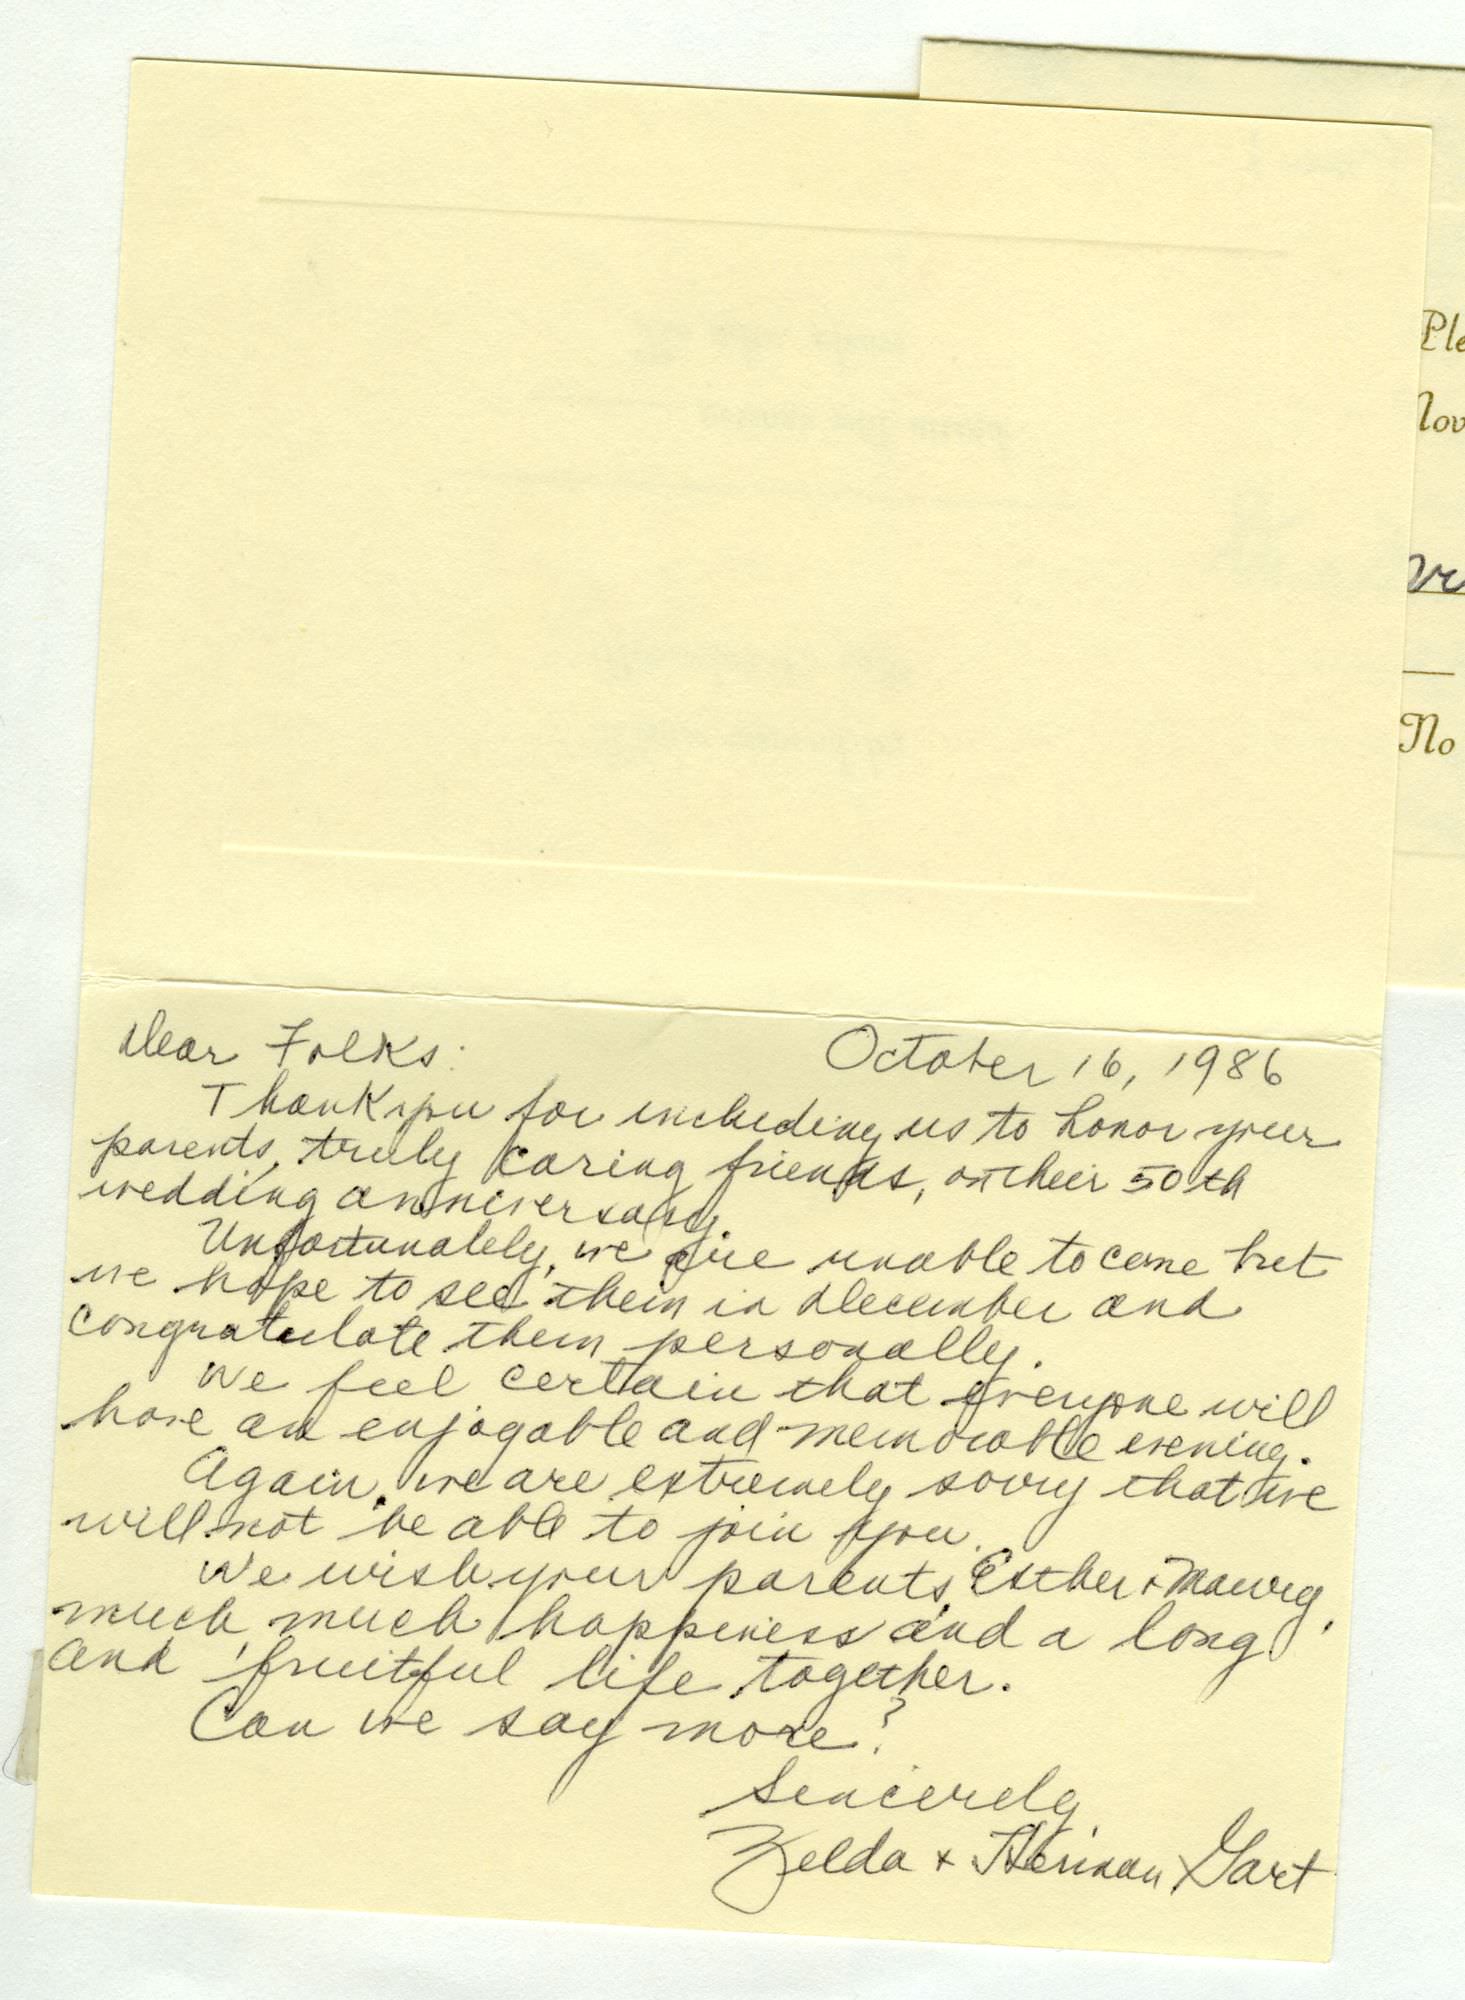 Dear Folks:
October 16, 1986
Thank you for including us to honor your
parents, truly caring friends, on their 50th
wedding anniversary.
Unfortunately, we are unable to come but
we hope to see them in December and
congratulate them personally.
We feel certain that everyone will
have an enjoyable and memorable evening.
Again, we are extremely sorry that we
will not be able to join you.
We wish your parents, Esther +
much, much happiness and a long
and fruitful life together.
Can we say more?
Sincerely,
Zelda + Herman Gart
Ple
Nov
No